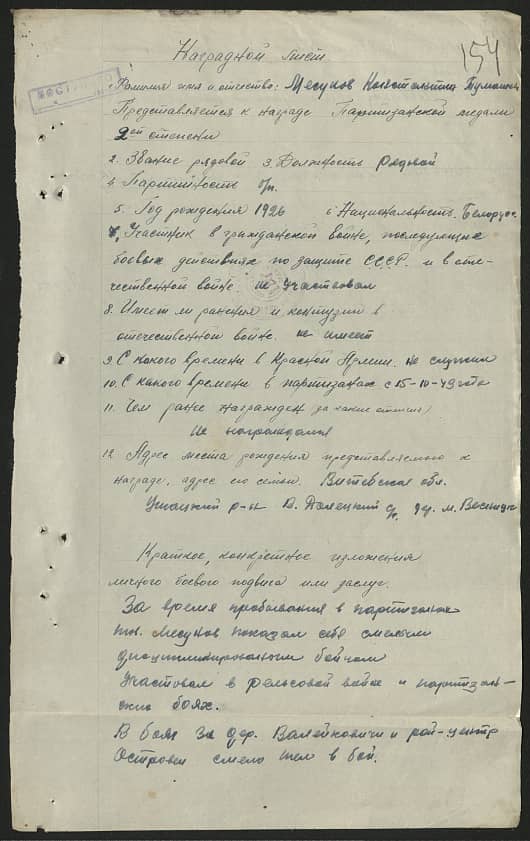 154
Наградной лист
Фамилия имя и отчество: Месуков Константин
Представляется к награде Партизанской медали
2ой степени
2. Звание рядовой 3. Должность рядовой
4. Партийность б/п.
5. Год рождения 1926 6 Национальность. Белорус.
7. Участник в гражданской войне, последующие
боевых действиях по защите СССР. и в оте-
чественной войне. не участвовал
8. Имеет ли ранения и контузии в
отечественной войне. не имеет
9. С какого времени в Красной Армии. не служил
10. С какого времени в партизанах с 15-10-43 года
11. Чем ранее награжден за какие отличия)
Не награждался
12. Адрес места рождения представляемого к
награде, адрес его семьи. Витебская обл.
Ушацкий р-н В. Долецкий с/с. дер. м.
Краткое, конкретное изложения
личного боевого подвига или заслуг.
За время пребывания в партизанах
тов. Месуков показал себя смелым
дисциплинированным бойцом
Участвовал в рельсовой войне и партизан-
ских боях.
В бою за дер. Валейковичи и рай-центр
Островец смело шел в бой.